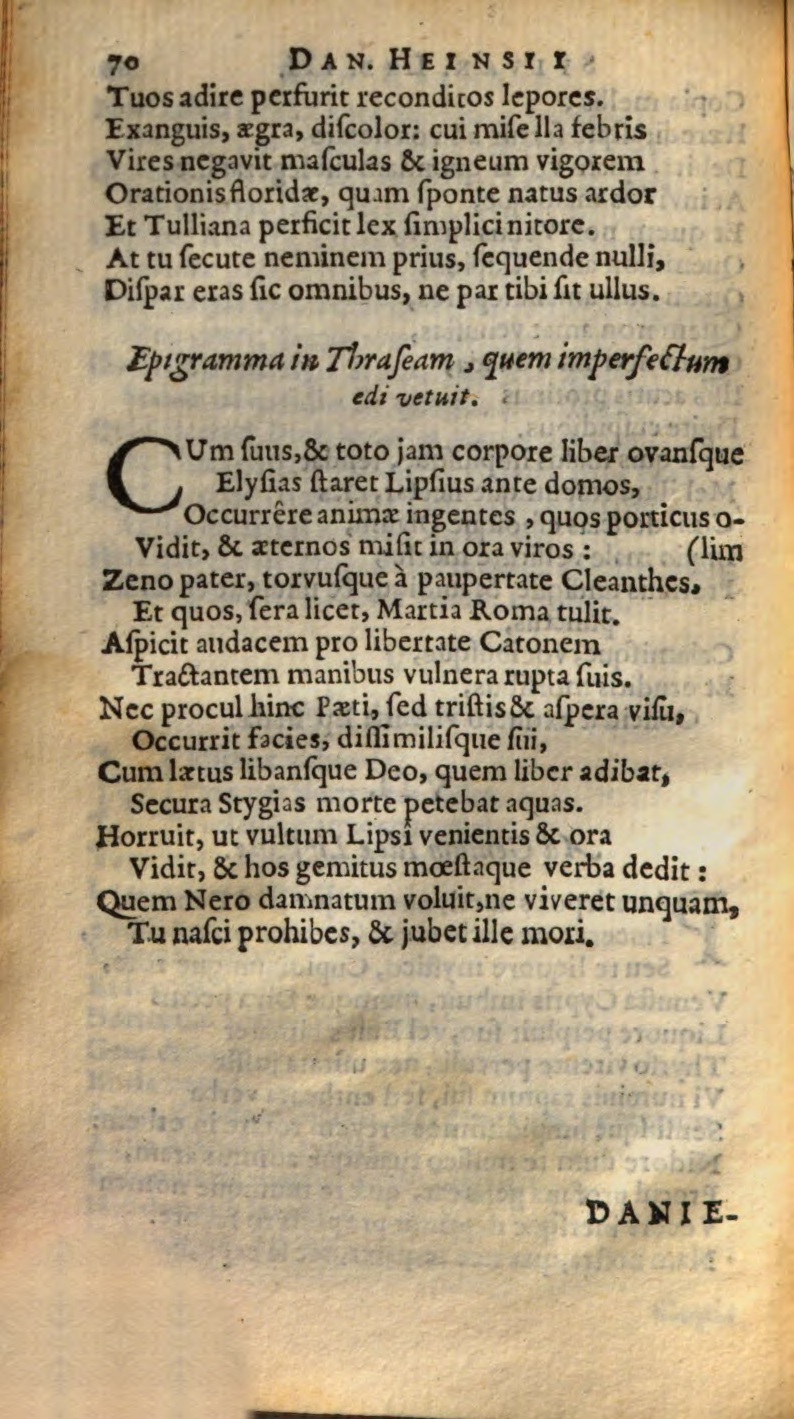 70 DAN. HEINSII
Tuos adire perfurit reconditos lepores.
Exanguis, ægra, diſcolor: cui miſella febris
Vires negavit maſculas & igneum vigorem
Orationis floridæ, quam ſponte natus ardor
Et Tulliana perficit lex ſimplici nitore.
At tu ſecute neminem prius, ſequende nulli,
Diſpar eras ſic omnibus, ne par tibi ſit ullus.
Epigramma in Thraſeam, quem imperfectum
edi vetuit.
CUm ſuus,& toto jam corpore liber ovanſque
Elyſias ſtaret Lipſius ante domos,
Occurrêre animæ ingentes, quos porticus o-
Vidit, & æternos miſit in ora viros: (lim
Zeno pater, torvuſque à paupertate Cleanthes,
Et quos, ſera licet, Martia Roma tulit.
Aſpicit audacem pro libertate Catonem
Tractantem manibus vulnera rupta ſuis.
Nec procul hinc Pæti, ſed triſtis & aſpera viſu,
Occurrit facies, diſſimiliſque ſui,
Cum lætus libanſque Deo, quem liber adibat,
Secura Stygias morte petebat aquas.
Horruit, ut vultum Lipsî venientis & ora
Vidit, & hos gemitus mœſtaque verba dedit:
Quem Nero damnatum voluit,ne viveret unquam,
Tu naſci prohibes, & jubet ille mori.
DANIE-